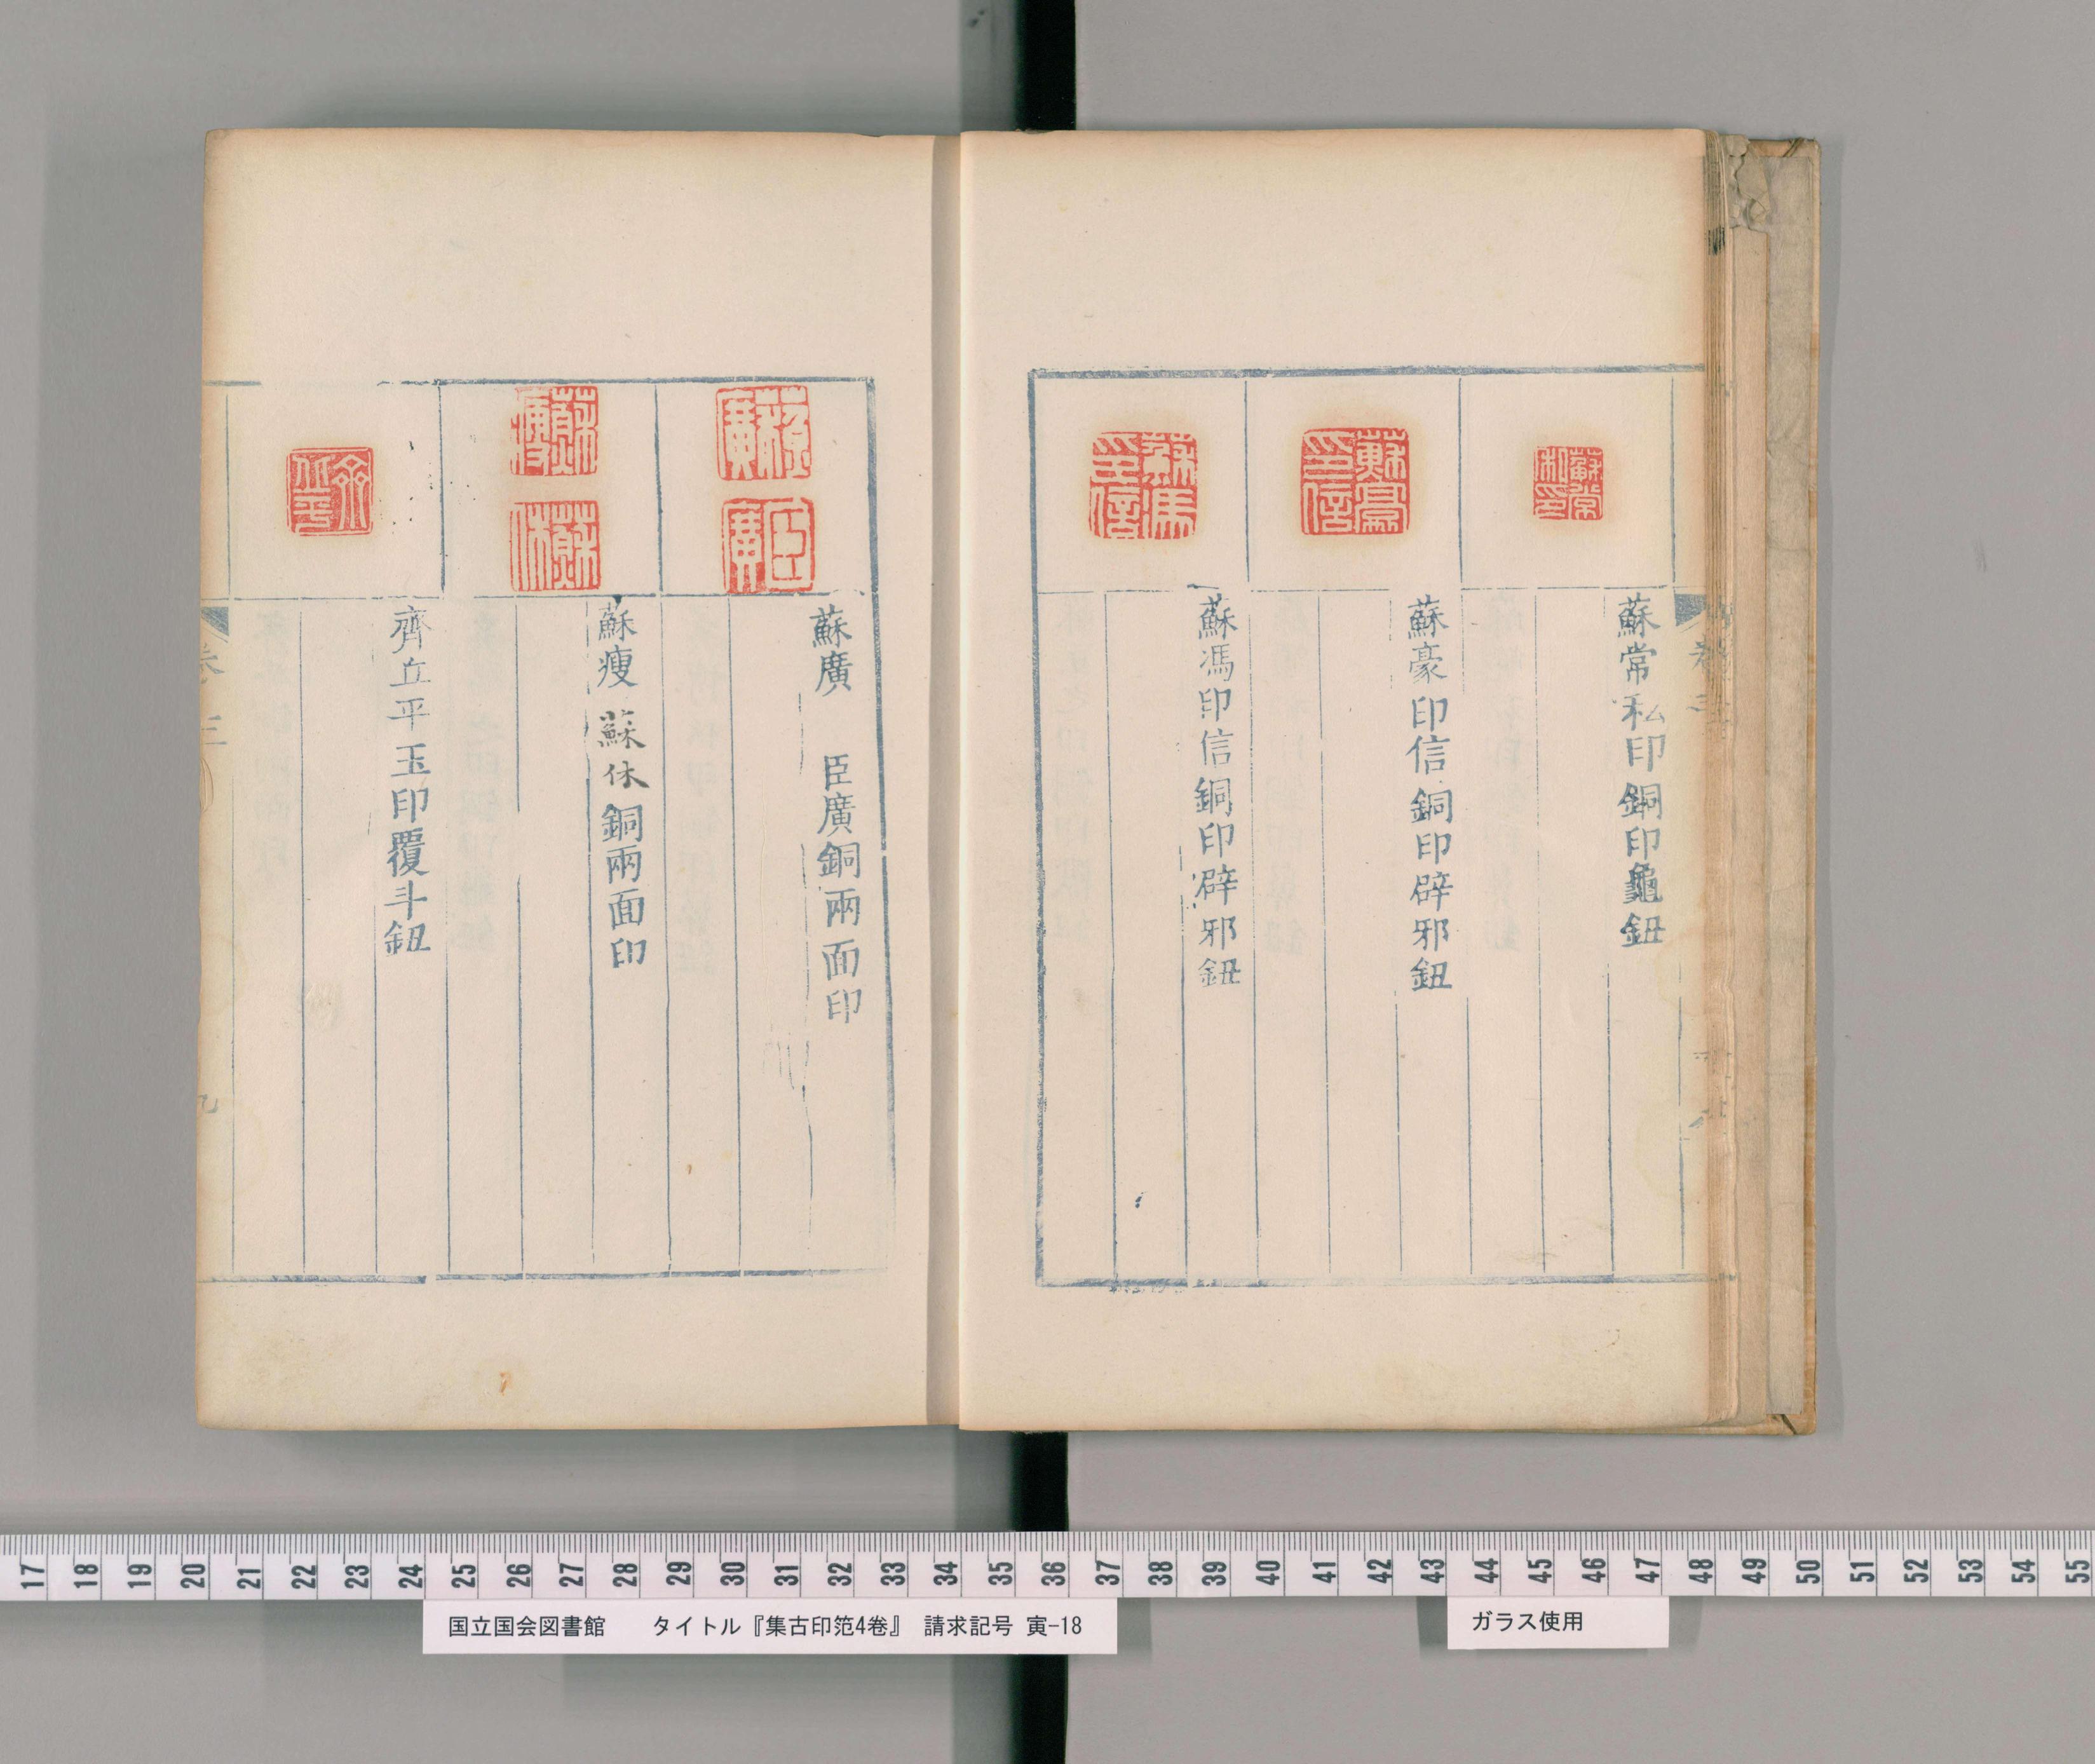 蘇常私印
蘇常私印銅印龜鈕
蘇豪印信
蘇豪印信銅印辟邪鈕
蘇馮印信
蘇馮印信銅印辟邪鈕
蘇廣
臣廣
蘇廣 臣廣銅兩面印
蘇瘦
蘇休
蘇瘦 蘇休銅兩面印
齊立平
齊立平玉印覆斗鈕
卷三
九
17 18 19 20 21 22 23 24 25 26 27 28 29 30 31 32 33 34 35 36 37 38 39 40 41 42 43 44 45 46 47 48 49 50 51 52 53 54 55
国立国会図書館 タイトル『集古印笵4巻』 請求記号 寅-18
ガラス使用